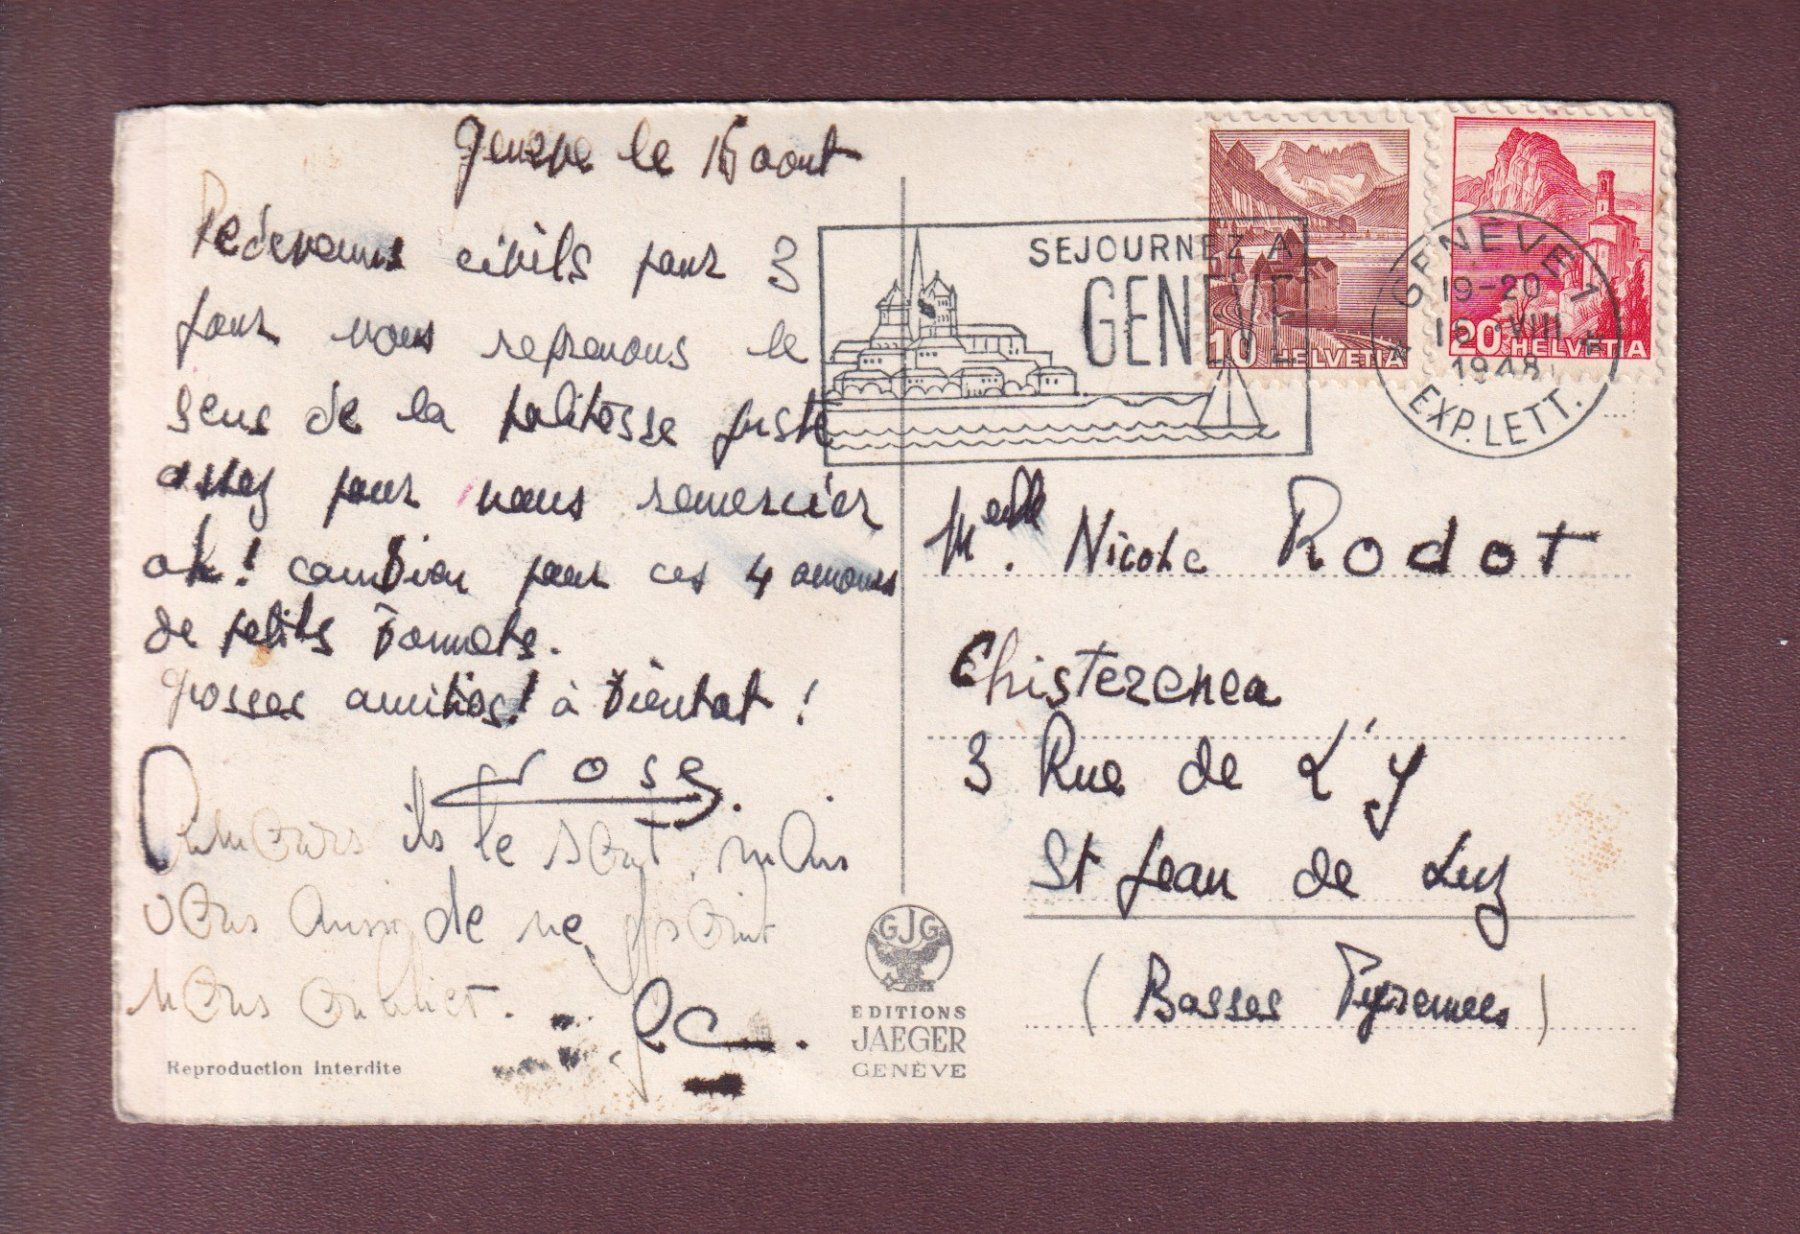 Genève le 16 aout
Redevenus civils pour 3
jours nous reprenons le
sens de la politesse juste
assez pour vous remercier
oh! combien pour ces 4 amours
de petits bonnets.
grosses amitiés! à bientot!
rose.
Amours ils le sont, mais
vous aussi de ne point
nous oublier.
Reproduction interdite
GJG
EDITIONS
JAEGER
GENÈVE
SEJOURNEZ A
GENEVE
10 HELVETIA
20 HELVETIA
GENÈVE 1
19-20
16 VIII
1948
EXP. LETT.
Melle. Nicole Rodot
Chisterenea
3 Rue de L'Y
St Jean de Luz
(Basses Pyrenees)